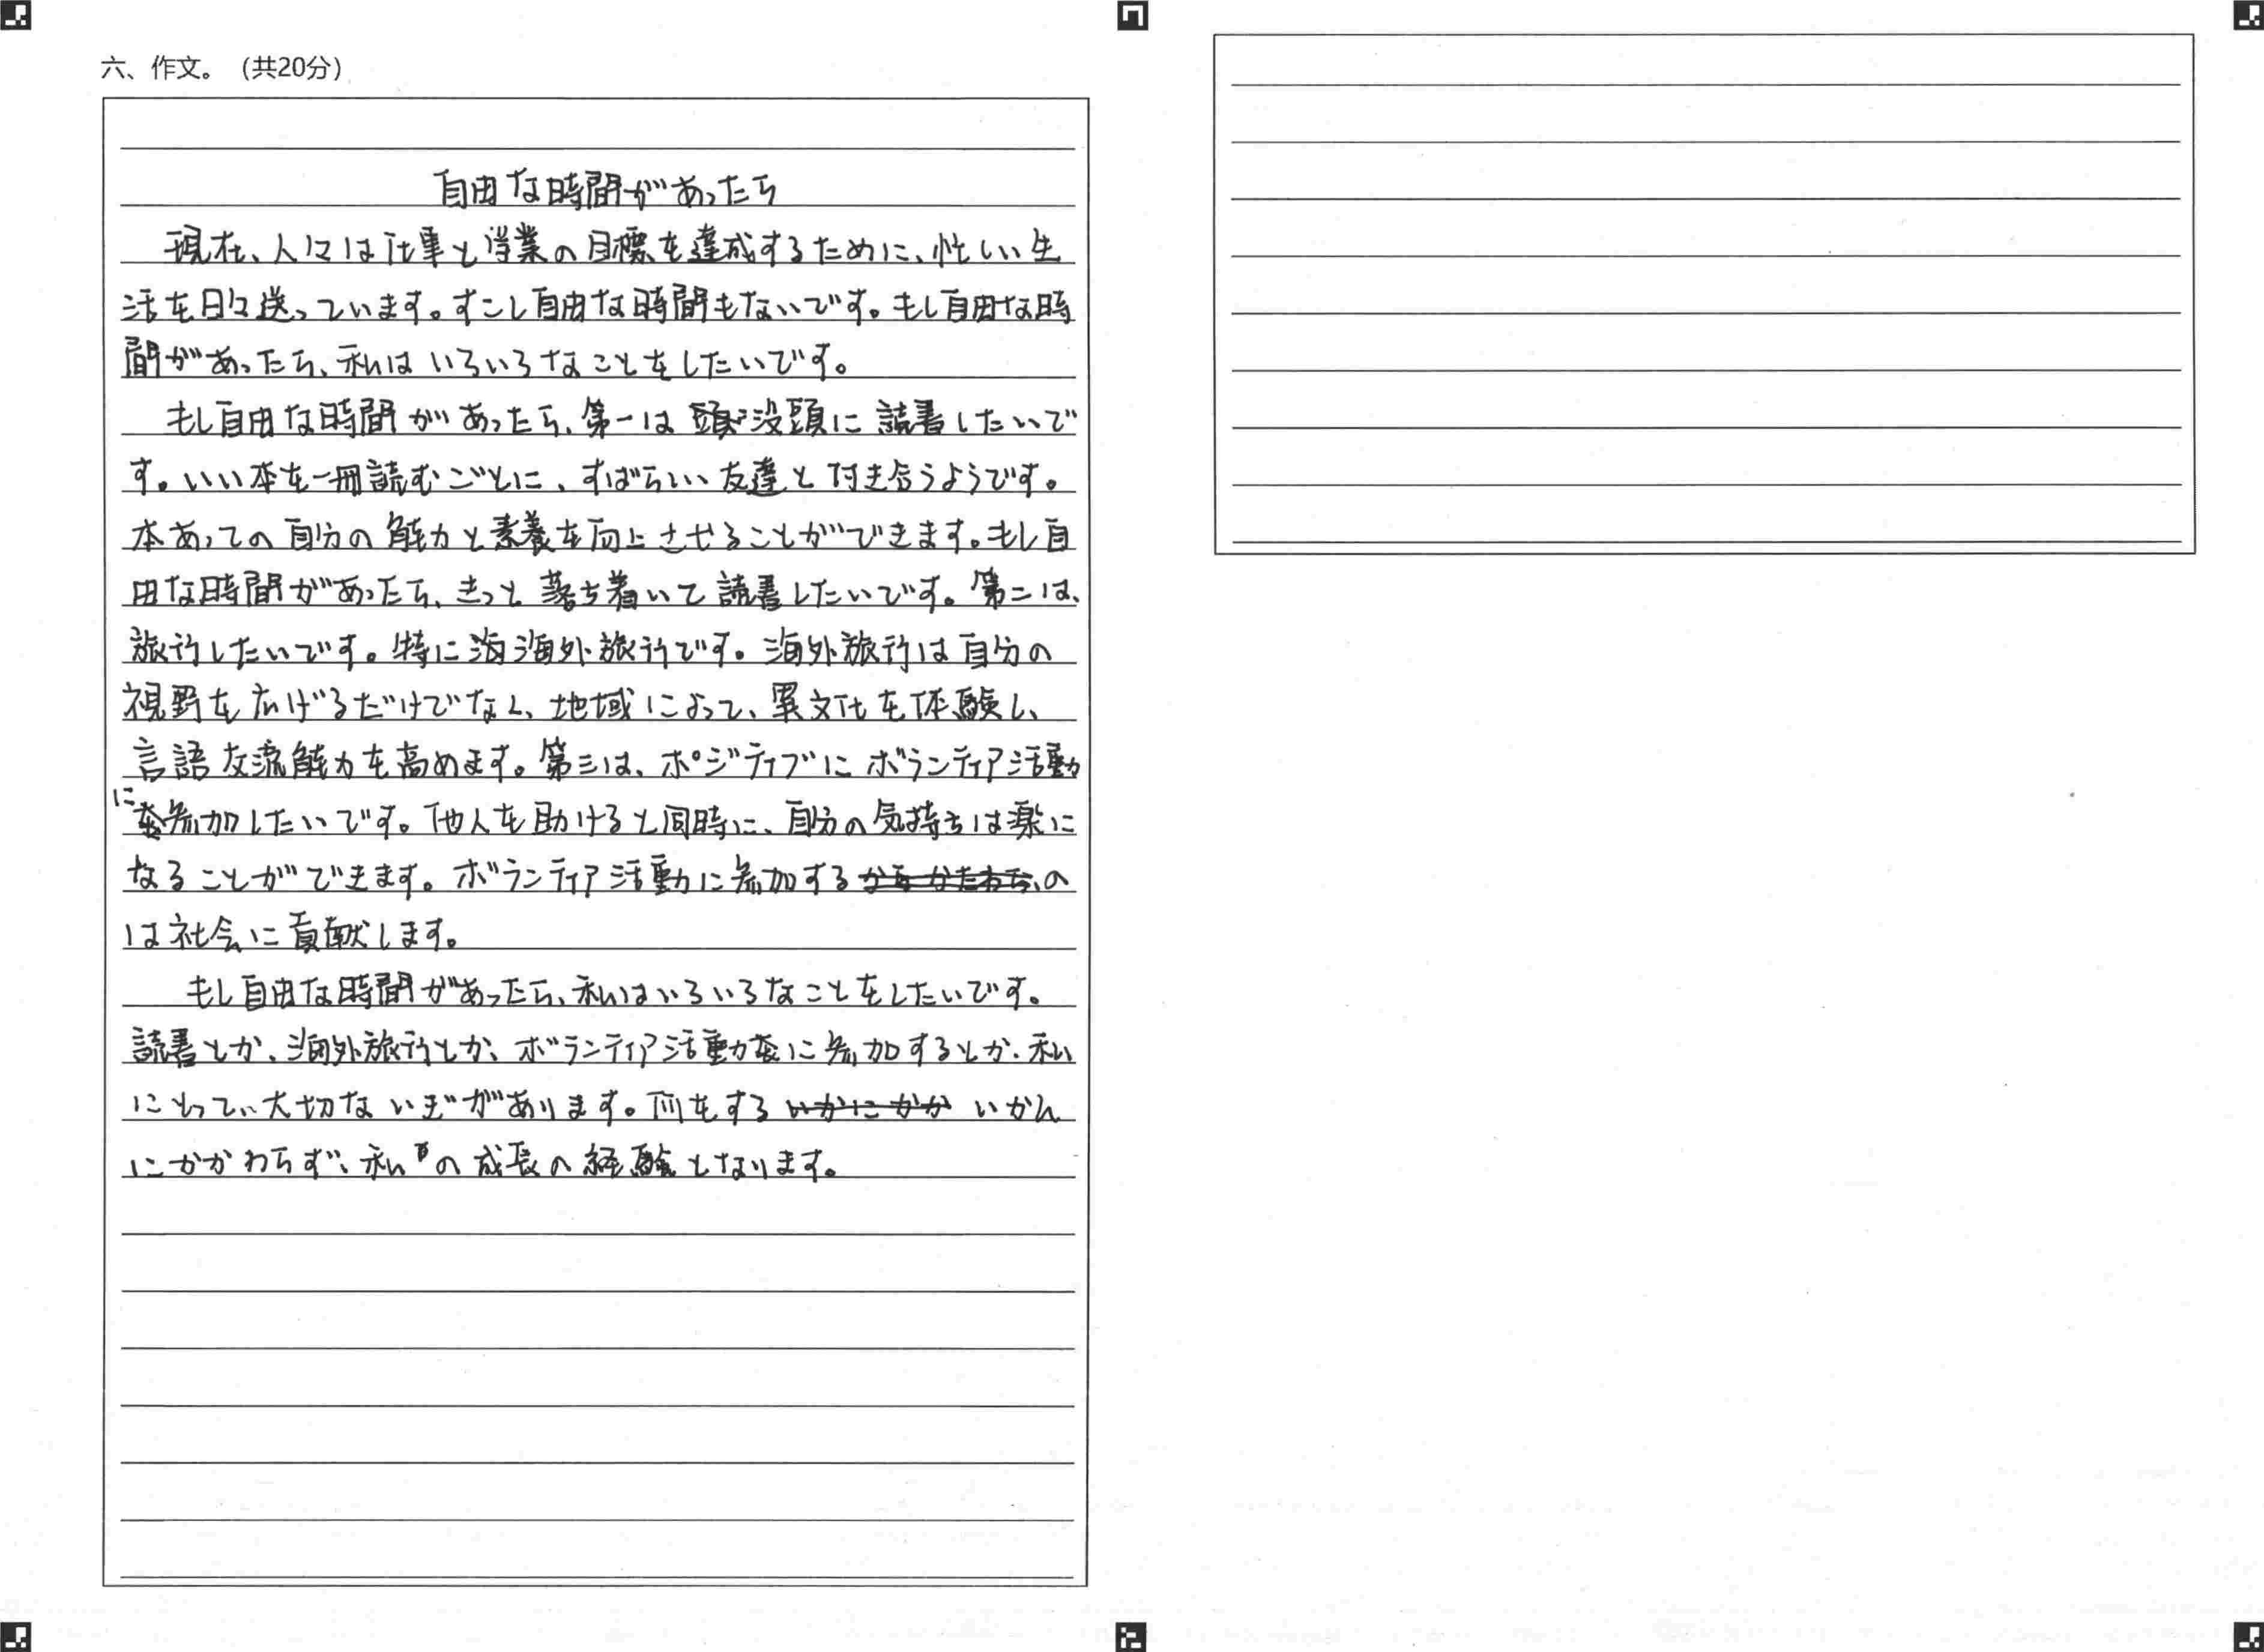 六、作文。（共20分）
自由な時間があったら
現在、人々は仕事と学業の目標を達成するために、忙しい生
活を日々送っています。すこし自由な時間もないです。もし自由な時
間があったら、私はいろいろなことをしたいです。
もし自由な時間があったら、第一は没頭に読書したいで
す。いい本を一冊読むごとに、すばらしい友達と付き合うようです。
本あっての自分の能力と素養を向上させることができます。もし自
由な時間があったら、きっと落ち着いて読書したいです。第二は、
旅行したいです。特に海外旅行です。海外旅行は自分の
視野を広げるだけでなく、地域によって、異文化を体験し、
言語交流能力を高めます。第三は、ポジティブにボランティア活動
に参加したいです。他人を助けると同時に、自分の気持ちは楽に
なることができます。ボランティア活動に参加するの
は社会に貢献します。
もし自由な時間があったら、私はいろいろなことをしたいです。
読書とか、海外旅行とか、ボランティア活動に参加するとか、私
にとって、大切ないぎがあります。何をするいかん
にかかわらず、私の成長の経験となります。